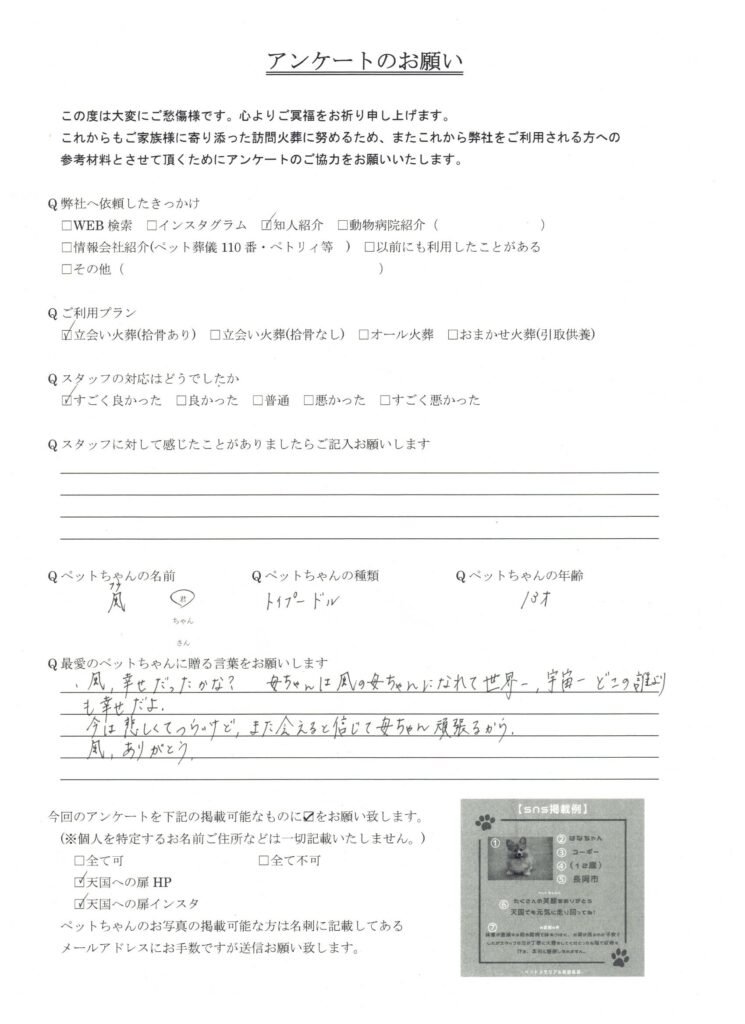 アンケートのお願い
この度は大変にご愁傷様です。心よりご冥福をお祈り申し上げます。
これからもご家族様に寄り添った訪問火葬に努めるため、またこれから弊社をご利用される方への
参考材料とさせて頂くためにアンケートのご協力をお願いいたします。
Q 弊社へ依頼したきっかけ
□WEB 検索 □インスタグラム ☑知人紹介 □動物病院紹介（ ）
□情報会社紹介(ペット葬儀 110 番・ペトリィ等 ) □以前にも利用したことがある
□その他（ ）
Q ご利用プラン
☑立会い火葬(拾骨あり) □立会い火葬(拾骨なし) □オール火葬 □おまかせ火葬(引取供養)
Q スタッフの対応はどうでしたか
☑すごく良かった □良かった □普通 □悪かった □すごく悪かった
Q スタッフに対して感じたことがありましたらご記入お願いします
Q ペットちゃんの名前 Q ペットちゃんの種類 Q ペットちゃんの年齢
凬 君 トイプードル 13才
ちゃん
さん
Q 最愛のペットちゃんに贈る言葉をお願いします
・凬, 幸せだったかな? 母ちゃんは凬の母ちゃんになれて世界一, 宇宙一 どこの誰より
も幸せだよ.
今は悲しくてつらいけど, また会えると信じて母ちゃん頑張るから.
凬, ありがとう.
今回のアンケートを下記の掲載可能なものに☑をお願い致します。
(※個人を特定するお名前ご住所などは一切記載いたしません。)
□全て可 □全て不可
☑天国への扉 HP
☑天国への扉インスタ
ペットちゃんのお写真の掲載可能な方は名刺に記載してある
メールアドレスにお手数ですが送信お願い致します。
【sns掲載例】
① ② はなちゃん
③ コーギー
④ (12歳)
⑤ 長岡市
⑥ たくさんの笑顔をありがとう
天国でも元気に走り回ってね!
⑦